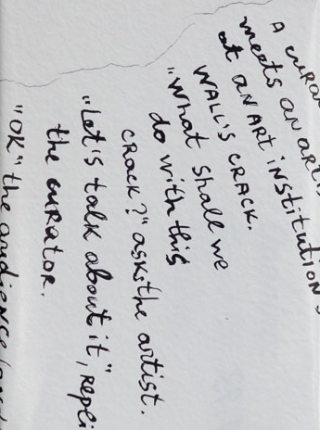 A
meets an
at AN ART iNSTitUTiON'S
WALL'S CRACK.
"What shall we
do with this
crack?" ask the artist.
"Let's talk about it",
the cuRator.
"OK" the audience